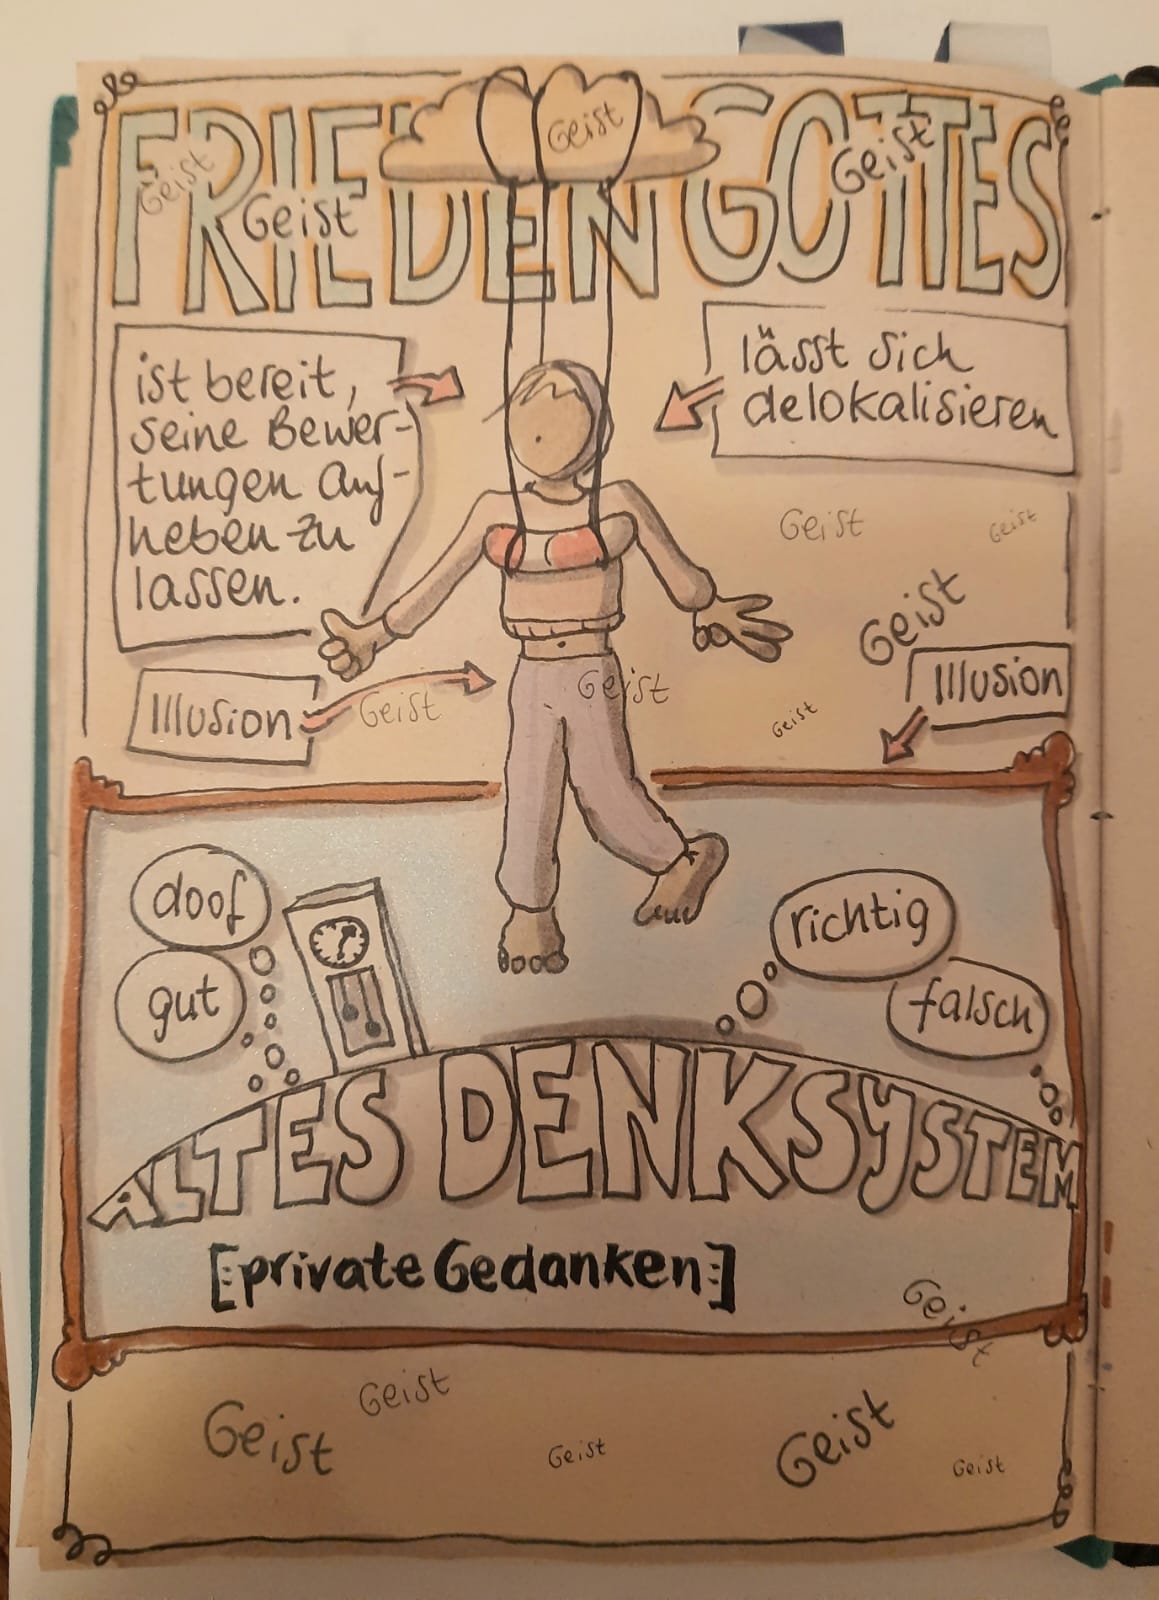 FRIEDEN GOTTES
Geist
Geist
Geist
Geist
ist bereit,
seine Bewer-
tungen auf-
heben zu
lassen.
lässt sich
delokalisieren
Geist
Geist
Geist
Illusion
Illusion
Geist
Geist
Geist
doof
gut
richtig
falsch
ALTES DENKSYSTEM
[private Gedanken]
Geist
Geist
Geist
Geist
Geist
Geist